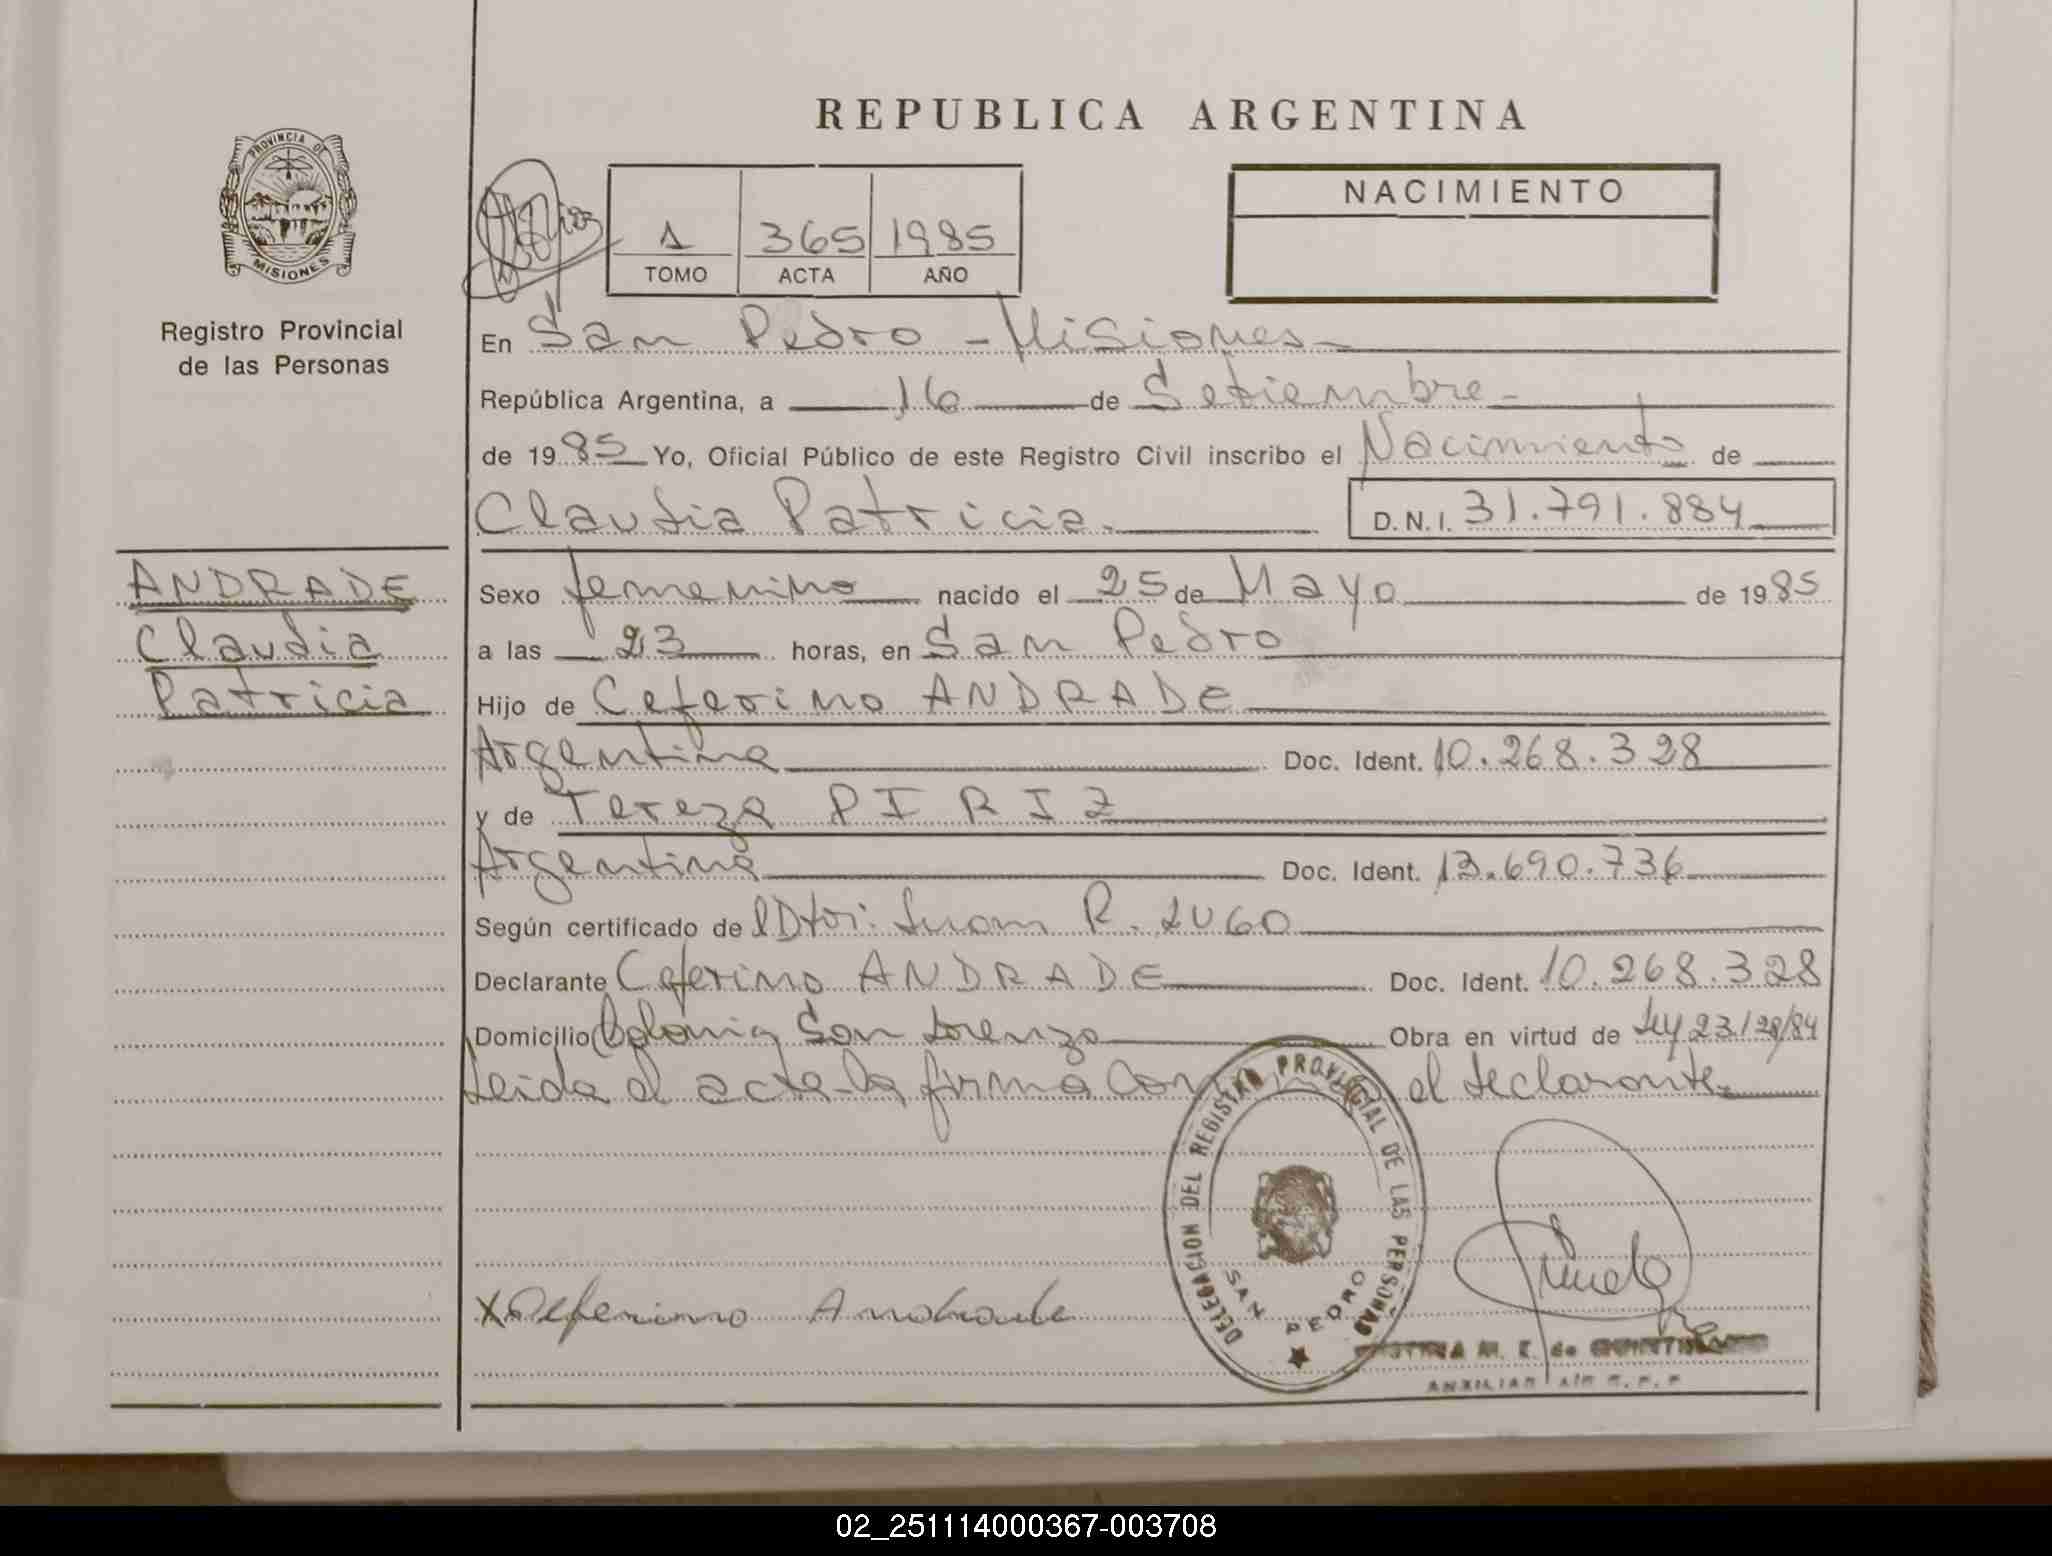 REPUBLICA ARGENTINA
PROVINCIA DE
MISIONES
Registro Provincial
de las Personas
1 365 1985
TOMO ACTA AÑO
NACIMIENTO
En San Pedro - Misiones -
República Argentina, a 16 de Setiembre -
de 1985 Yo, Oficial Público de este Registro Civil inscribo el Nacimiento de
Claudia Patricia. D.N.I. 31.791.884
ANDRADE
Claudia
Patricia
Sexo femenino nacido el 25 de Mayo de 1985
a las 23 horas, en San Pedro
Hijo de Ceferino ANDRADE
Argentina Doc. Ident. 10.268.328
y de Tereza PIRIZ
Argentina Doc. Ident. 13.690.736
Según certificado de Juan R. LUGO
Declarante Ceferino ANDRADE Doc. Ident. 10.268.328
Domicilio Colonia San Lorenzo Obra en virtud de Ley 23128/84
Leida el acta la firma el declarante
DELEGACION DEL REGISTRO PROVINCIAL DE LAS PERSONAS
SAN PEDRO
X Ceferino Andrade
M. E. de
AUXILIAR
02_251114000367-003708